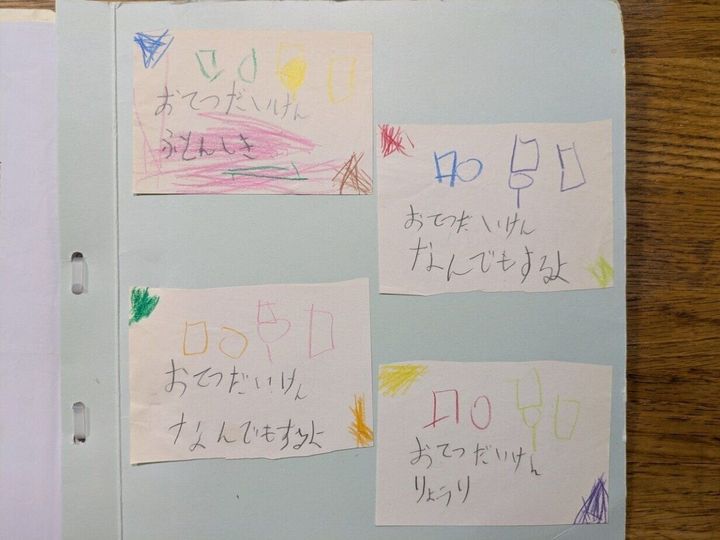 おてつだいけん
ふとんしき
おてつだいけん
なんでもするよ
おてつだいけん
なんでもするよ
おてつだいけん
りょうり